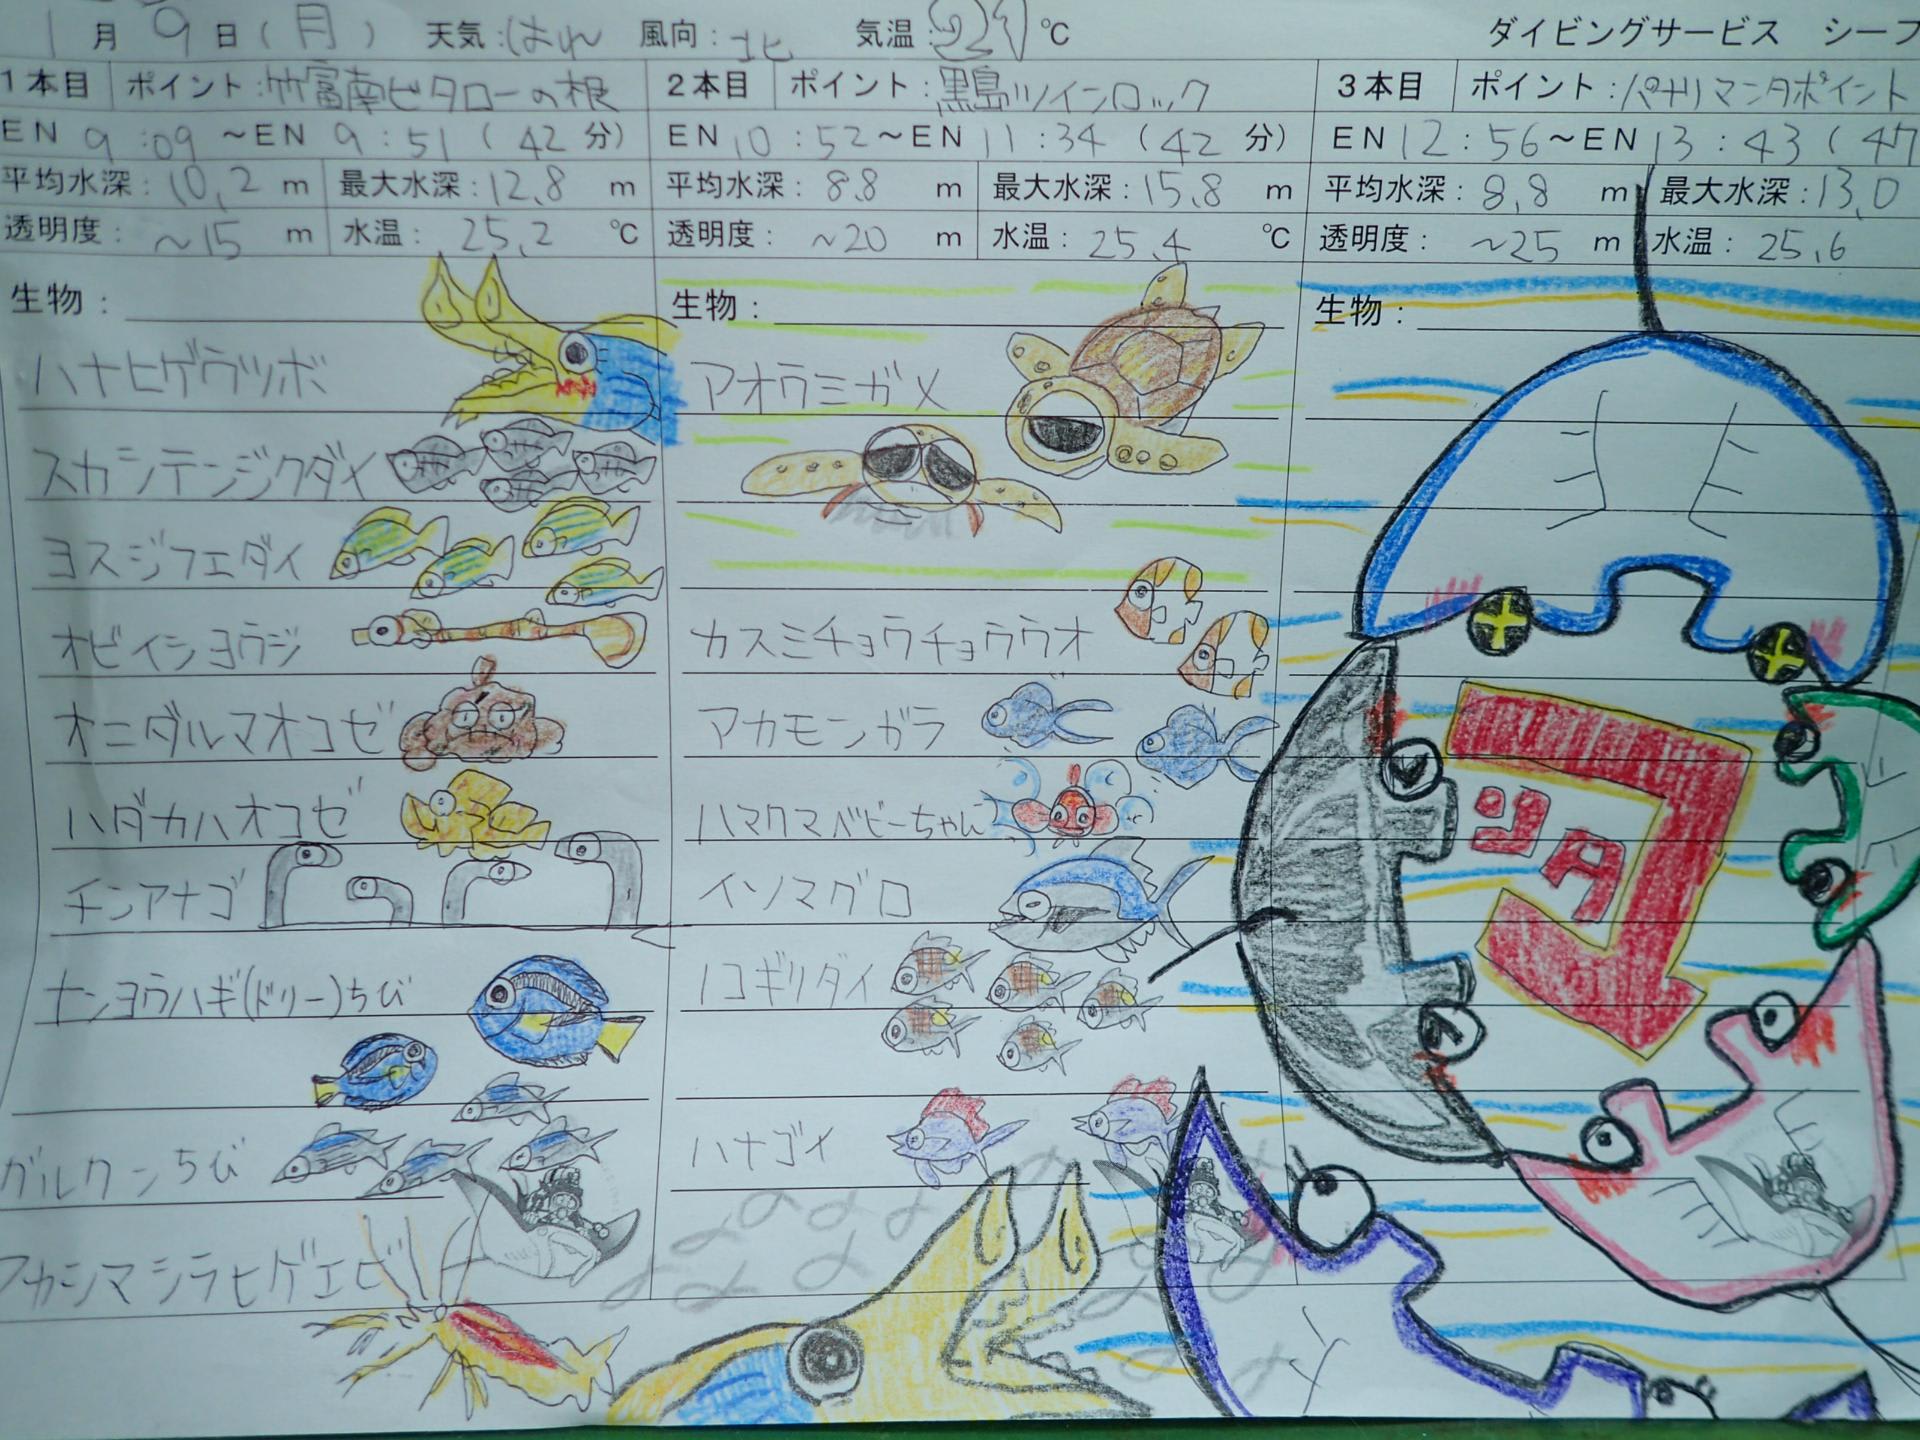 1月9日(月) 天気:はれ 風向:北 気温:21℃ ダイビングサービス シーフ
1本目 ポイント:竹富南ビタローの根
EN 9:09～EN 9:51(42分)
平均水深:10.2m 最大水深:12.8m
透明度:~15m 水温:25.2℃
生物:
ハナヒゲウツボ
スカシテンジクダイ
ヨスジフエダイ
オビイシヨウジ
オニダルマオコゼ
ハダカハオコゼ
チンアナゴ
ナンヨウハギ(ドリー)ちび
グルクンちび
アカシマシラヒゲエビ
2本目 ポイント:黒島ツインロック
EN 10:52～EN 11:34(42分)
平均水深:8.8m 最大水深:15.8m
透明度:~20m 水温:25.4℃
生物:
アオウミガメ
カスミチョウチョウウオ
アカモンガラ
ハマクマベビーちゃん
イソマグロ
ノコギリダイ
ハナゴイ
3本目 ポイント:パナリマンタポイント
EN 12:56～EN 13:43(47
平均水深:8.8m 最大水深:13.0
透明度:~25m 水温:25.6
生物: